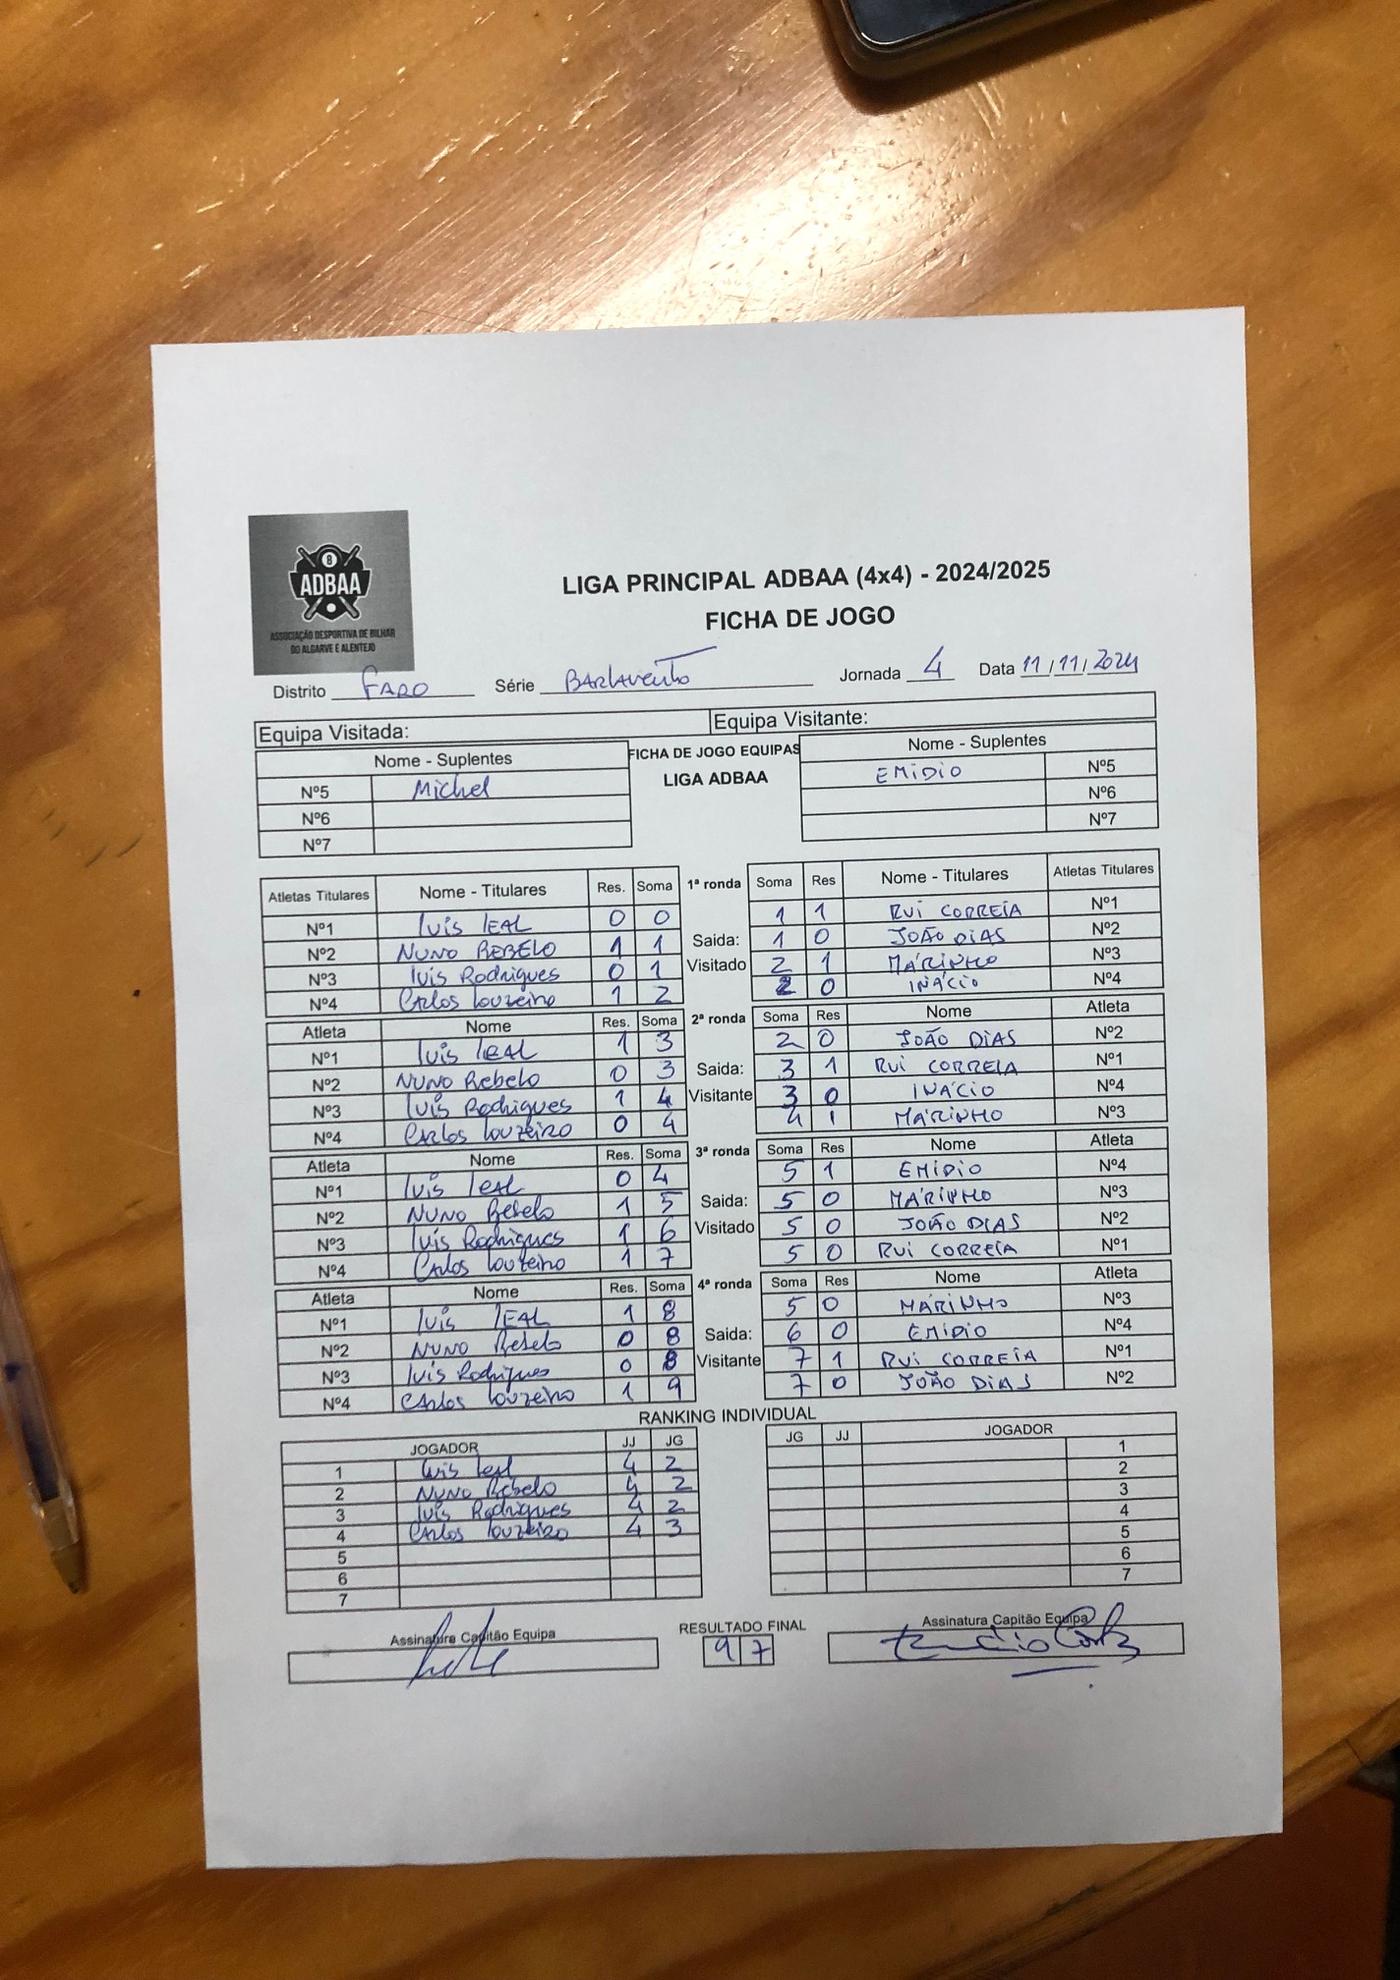 8
ADBAA
ASSOCIAÇÃO DESPORTIVA DE BILHAR
DO ALGARVE E ALENTEJO
LIGA PRINCIPAL ADBAA (4x4) - 2024/2025
FICHA DE JOGO
Distrito FARO Série BARLAVENTO Jornada 4 Data 11/11/2024
Equipa Visitada: Equipa Visitante:
Nome - Suplentes FICHA DE JOGO EQUIPAS Nome - Suplentes
Nº5 Michel LIGA ADBAA EMÍDIO Nº5
Nº6 Nº6
Nº7 Nº7
Atletas Titulares Nome - Titulares Res. Soma 1ª ronda Soma Res Nome - Titulares Atletas Titulares
Nº1 Luís LEAL 0 0 1 1 RUI CORREIA Nº1
Nº2 NUNO REBELO 1 1 Saida: 1 0 JOÃO DIAS Nº2
Nº3 Luís Rodrigues 0 1 Visitado 2 1 MÁRINHO Nº3
Nº4 Carlos Louzeiro 1 2 2 0 INÁCIO Nº4
Atleta Nome Res. Soma 2ª ronda Soma Res Nome Atleta
Nº1 Luís LEAL 1 3 2 0 JOÃO DIAS Nº2
Nº2 NUNO Rebelo 0 3 Saida: 3 1 RUI CORREIA Nº1
Nº3 Luís Rodrigues 1 4 Visitante 3 0 INÁCIO Nº4
Nº4 CARLOS Louzeiro 0 4 4 1 MÁRINHO Nº3
Atleta Nome Res. Soma 3ª ronda Soma Res Nome Atleta
Nº1 Luís Leal 0 4 5 1 EMÍDIO Nº4
Nº2 NUNO Rebelo 1 5 Saida: 5 0 MÁRINHO Nº3
Nº3 Luís Rodrigues 1 6 Visitado 5 0 JOÃO DIAS Nº2
Nº4 Carlos Louzeiro 1 7 5 0 RUI CORREIA Nº1
Atleta Nome Res. Soma 4ª ronda Soma Res Nome Atleta
Nº1 Luís LEAL 1 8 5 0 MÁRINHO Nº3
Nº2 NUNO Rebelo 0 8 Saida: 6 0 EMÍDIO Nº4
Nº3 Luís Rodrigues 0 8 Visitante 7 1 RUI CORREIA Nº1
Nº4 Carlos Louzeiro 1 9 7 0 JOÃO DIAS Nº2
RANKING INDIVIDUAL
JOGADOR JJ JG JG JJ JOGADOR
1 Luis Leal 4 2 1
2 NUNO Rebelo 4 2 2
3 Luís Rodrigues 4 2 3
4 Carlos Louzeiro 4 3 4
5 5
6 6
7 7
Assinatura Capitão Equipa RESULTADO FINAL Assinatura Capitão Equipa
9 7